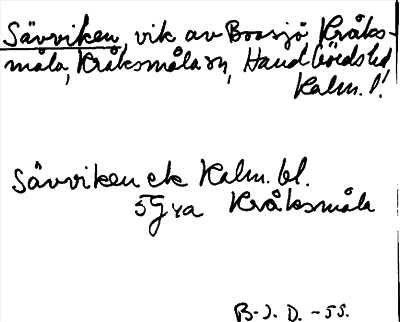 Sävviken, vik av Boasjö Kråks-
måla, Kråksmåla sn, Handbörds hd
Kalm. l.
Sävviken ek Kalm. bl.
5 G y a Kråksmåla
B-J. D. - 55.